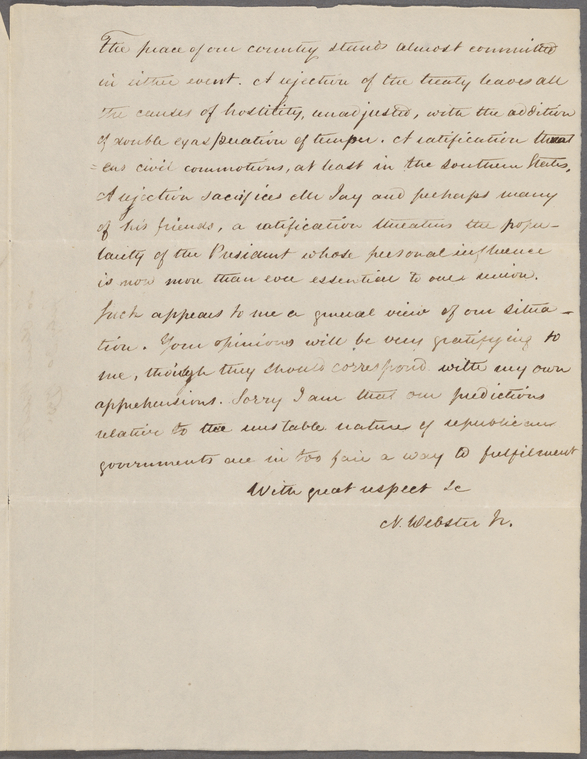 The peace of our country stands almost committed
in either event. A rejection of the treaty leaves all
the causes of hostility, unadjusted, with the addition
of double exasperation of temper. A ratification threat
=ens civil commotions, at least in the southern States,
A rejection sacrifices Mr Jay and perhaps many
of his friends, a ratification threatens the popu-
larity of the President whose personal influence
is now more than ever essential to our union.
Such appears to me a general view of our situa-
tion. Your opinions will be very gratifying to
me, though they should correspond with my own
apprehensions. Sorry I am that our predictions
relative to the unstable nature of republican
governments are in too fair a way to fulfilment
With great respect &c
N. Webster Jr.